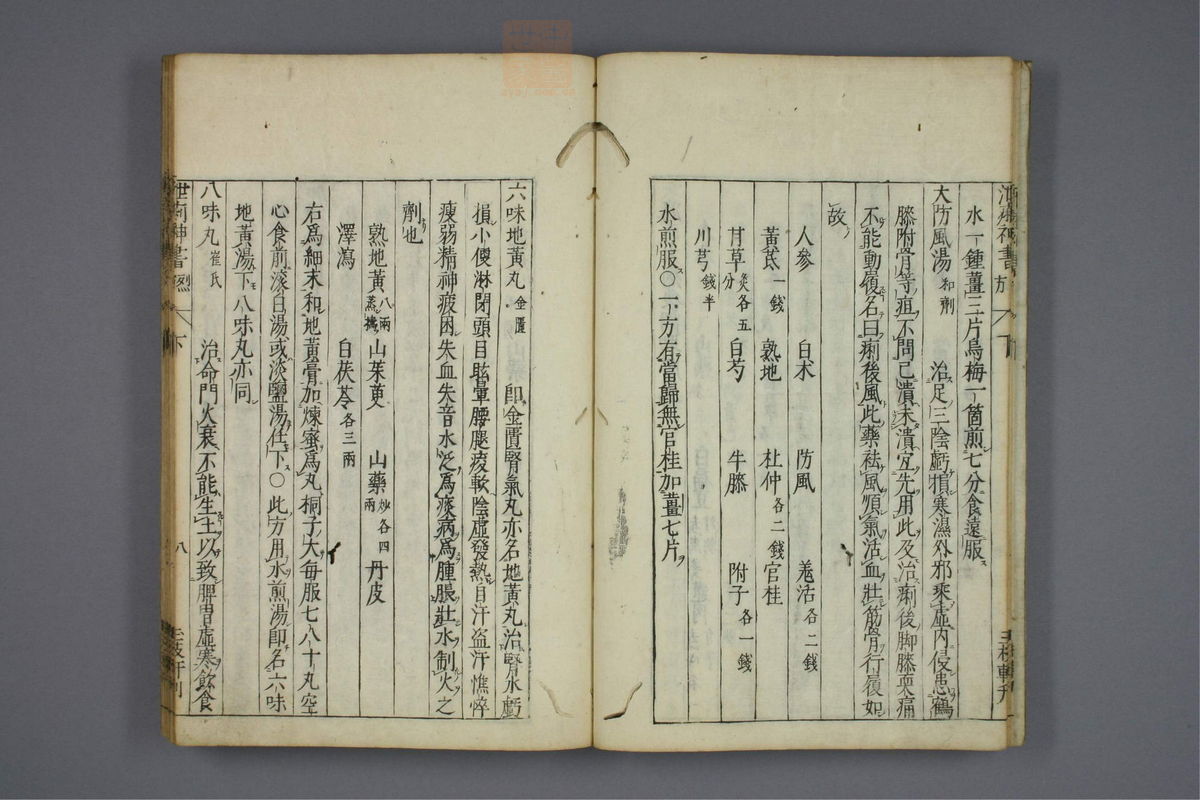 水一鍾薑三片烏梅一箇煎七分食遠服
大防風湯 和劑 治足三陰虧損寒濕外邪乘虛内侵患鶴
膝附骨等疽不問已潰未潰宜先用此及治痢後脚膝耎痛
不能動履名曰痢後風此藥袪風順氣活血壯筋骨行履如
故
人參 白朮 防風 羗活各二錢
黃芪一錢 熟地 杜仲各二錢 官桂
甘草炙各五分 白芍 牛膝 附子各一錢
川芎錢半
水煎服○一方有當歸無官桂加薑七片
六味地黃丸 金匱 即金匱腎氣丸亦名地黃丸治腎水虧
損小便淋閉頭目眩暈腰腿痠軟陰虛發熱自汗盜汗憔悴
瘦弱精神疲困失血失音水泛爲痰病爲腫脹壯水制火之
劑也
熟地黃八兩蒸搗 山茱萸 山藥炒各四兩 丹皮
澤瀉 白茯苓各三兩
右爲細末和地黃膏加煉蜜爲丸桐子大每服七八十丸空
心食前滚白湯或淡鹽湯任下○此方用水煎湯即名六味
地黃湯下八味丸亦同
八味丸 崔氏 治命門火衰不能生土以致脾胃虛寒飲食
八